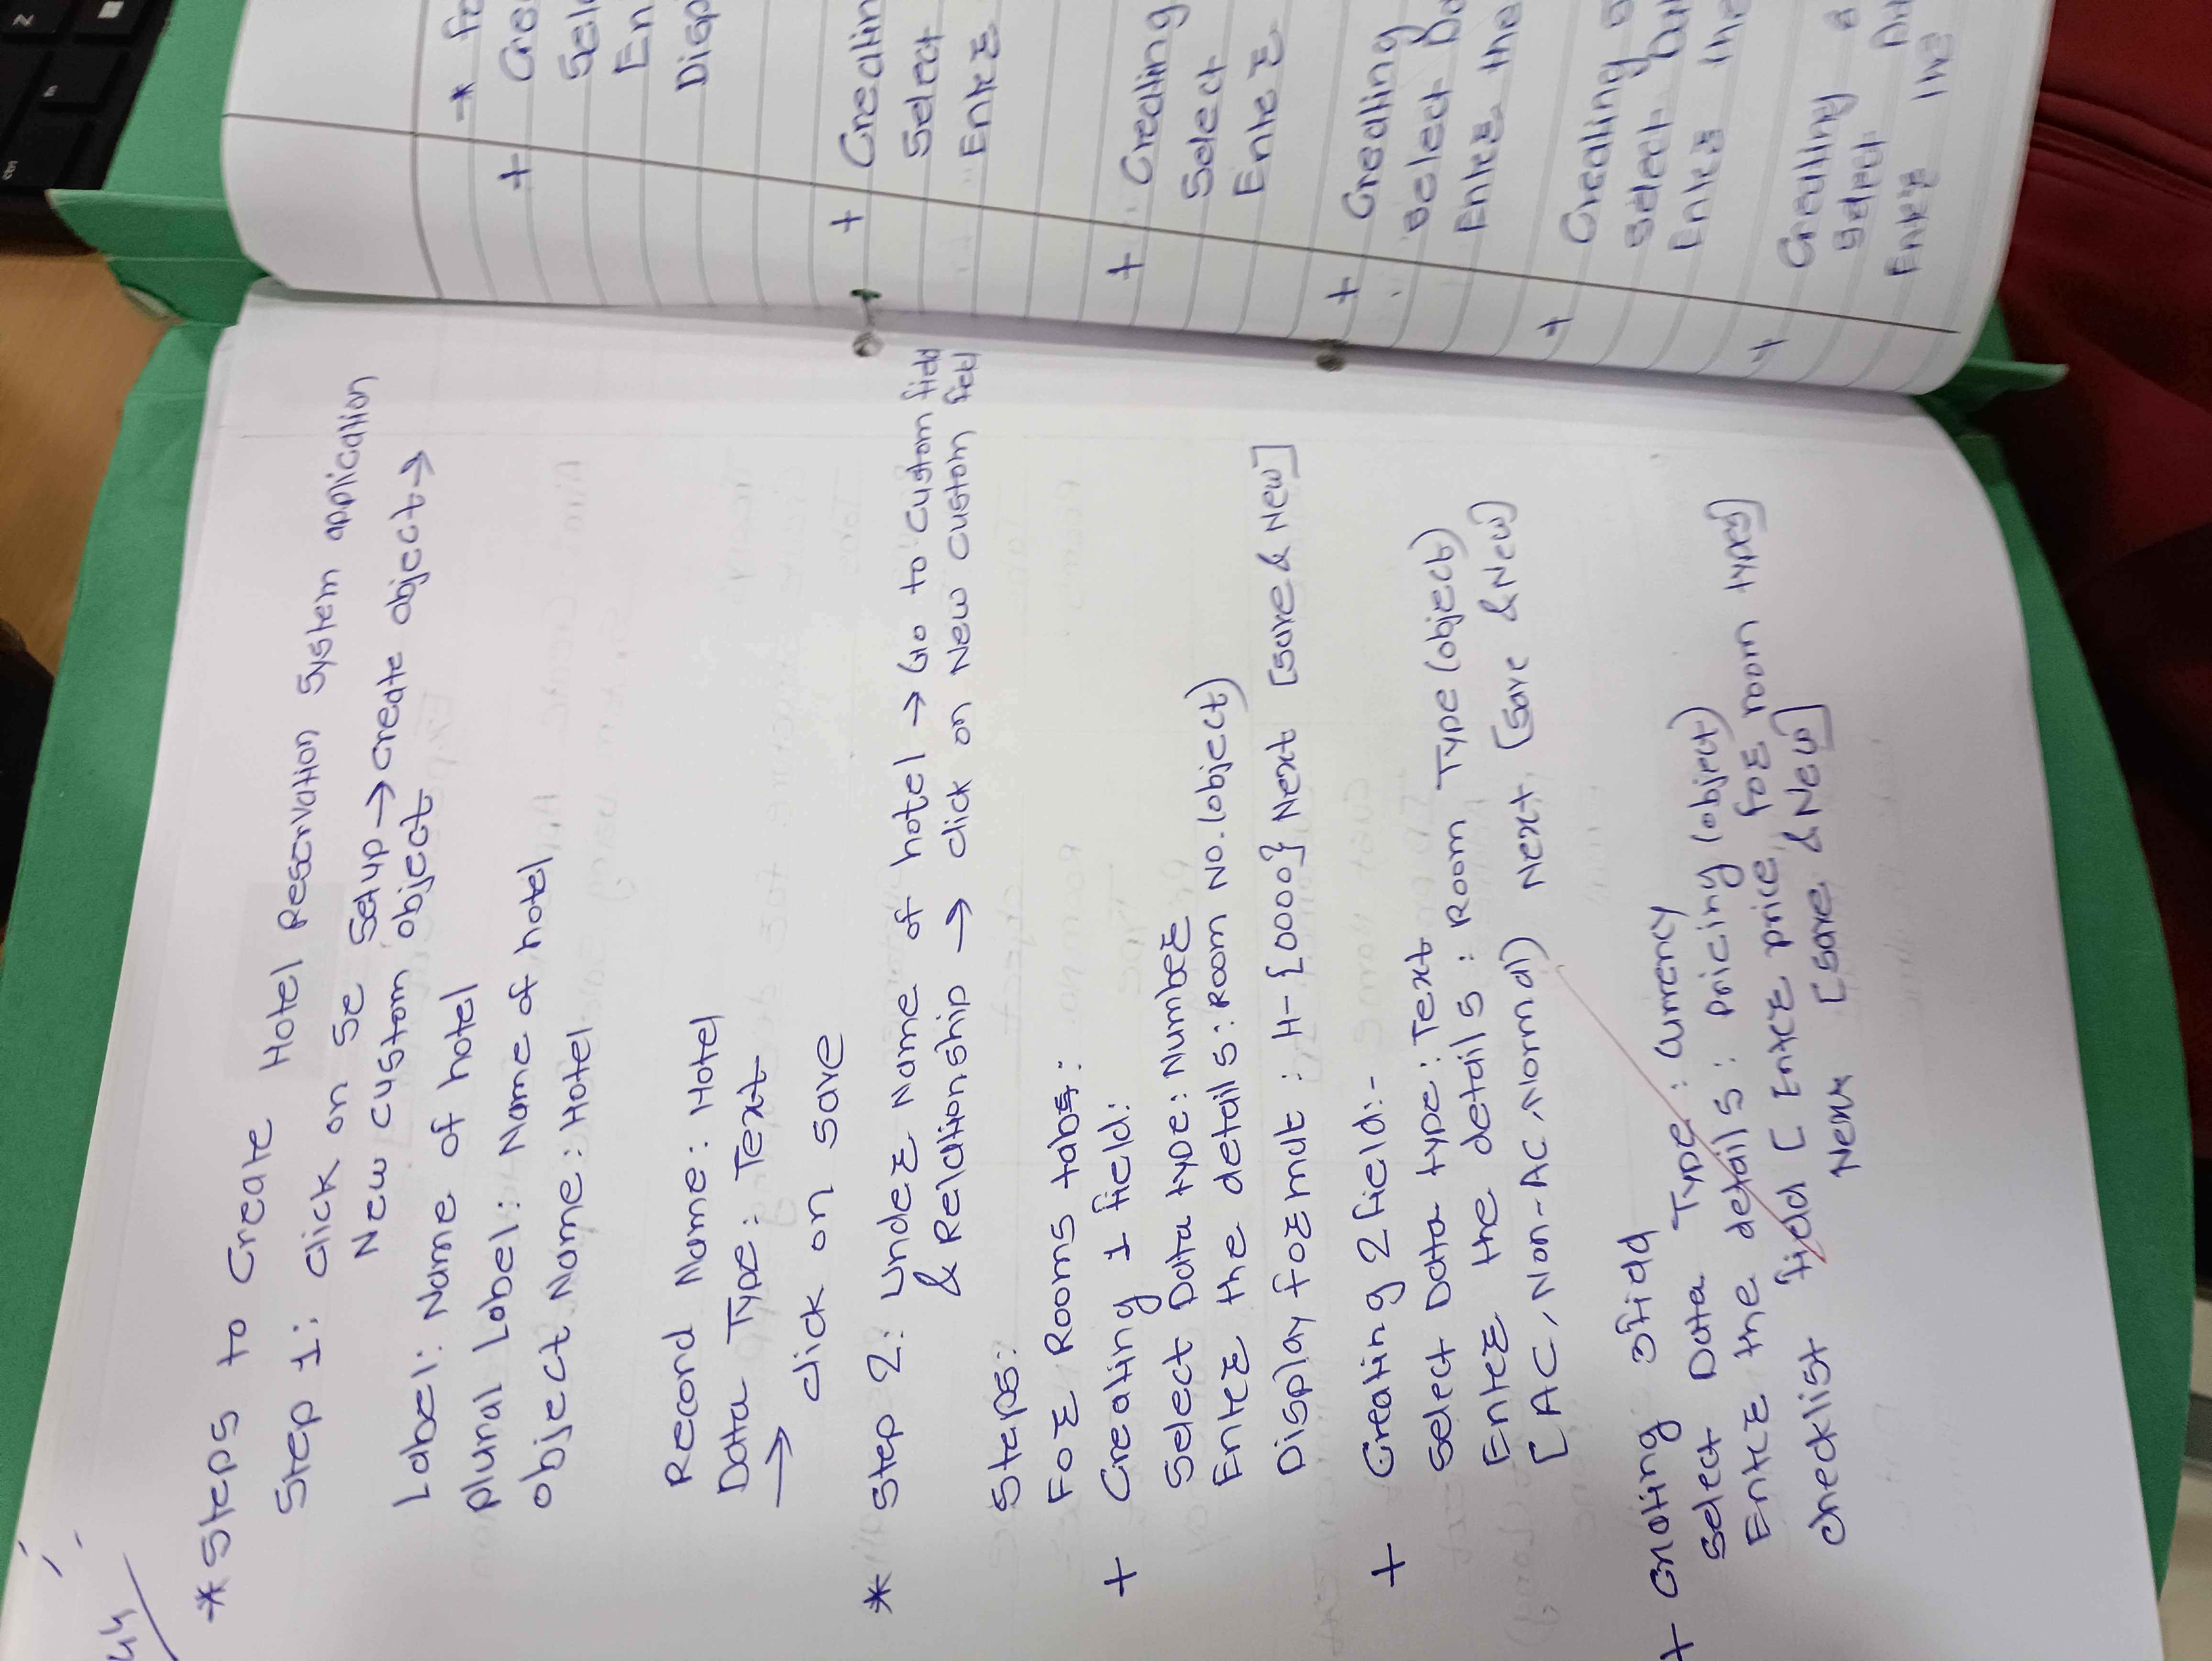 * Steps to Create Hotel Reservation System application
Step 1: click on Se Setup → create object →
New custom object
Label: Name of hotel
plural Label: Name of hotel
object Name: Hotel
Record Name: Hotel
Data Type: Text
→ click on save
* Step 2: Under Name of hotel → Go to custom field
& Relationship → click on New custom field
Steps:
For Rooms tabs:
+ Creating 1 field:
Select Data type: Number
Enter the details: Room No. (object)
Display format: H-{0000} Next [save & New]
+ Creating 2 field:-
Select Data type: Text
Enter the details: Room Type (object)
[AC, Non-AC, Normal) Next [Save & New]
+ Creating 3 field
Select Data Type: Currency
Enter the details: pricing (object)
checklist field [Enter price for room type]
Next [Save & New]
* Fo
+ Cre
Sele
En
Disp
+ Creatin
Select
Enter
+ Creating
Select
Enter
+ Creating
Select Da
Enter the
+ Creating
Select
Enter the
+ Creating
Select
Enter the